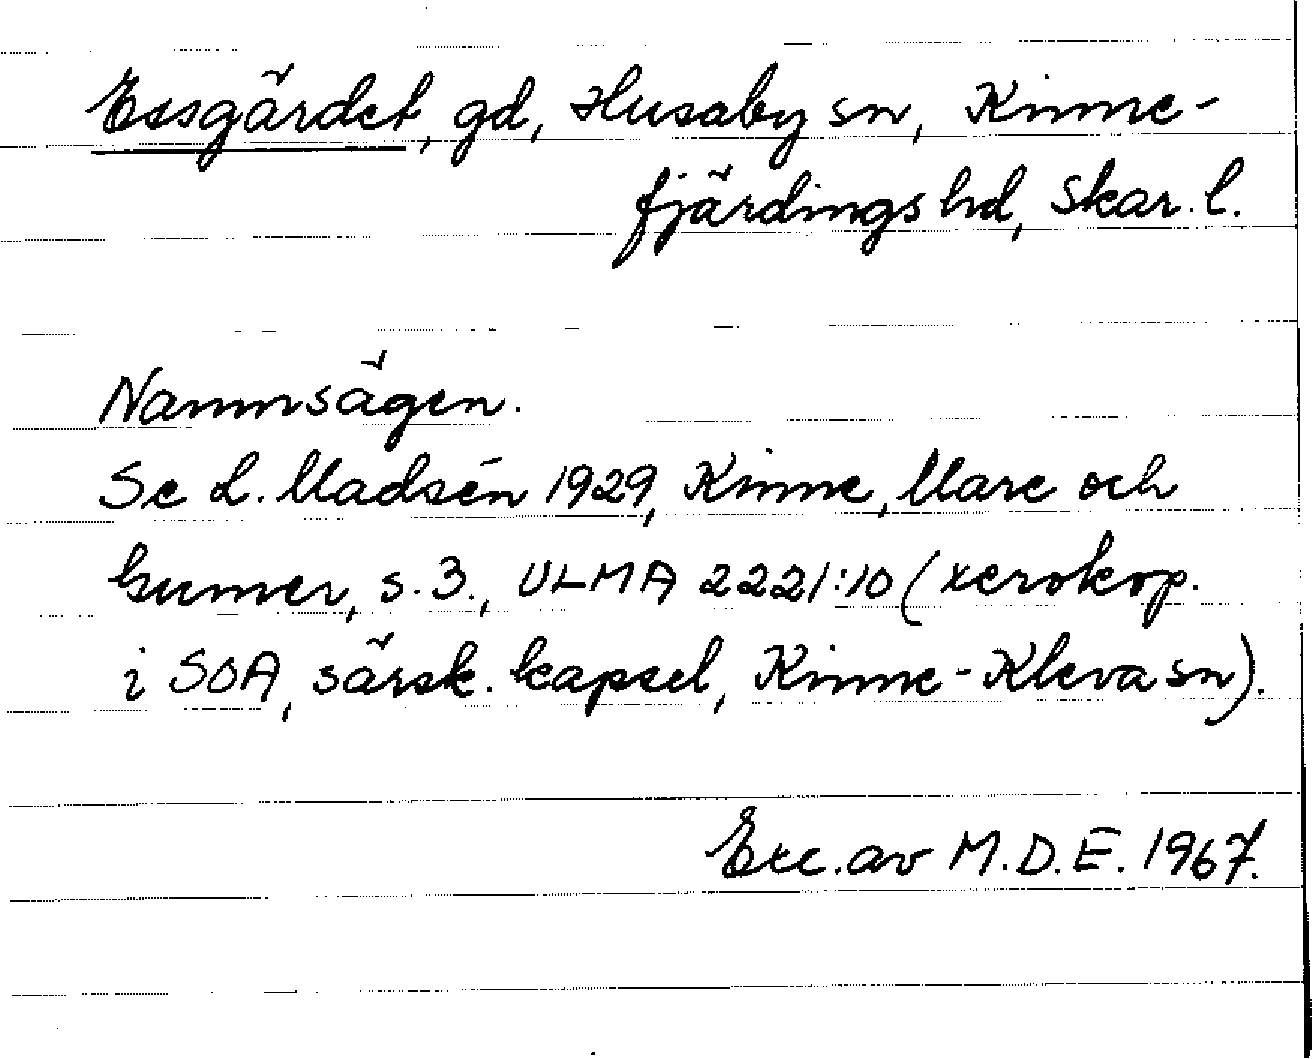 Essgärdet, gd, Husaby sn, Kinne-
fjärdings hd, Skar. l.
Namnsägen.
Se L. Madsén 1929, Kinne, Mare och
Gumer, s. 3., ULMA 2221:10 (xerokop.
i SOA, särsk. kapsel, Kinne-Kleva sn).
Exc. av M.D.E. 1967.